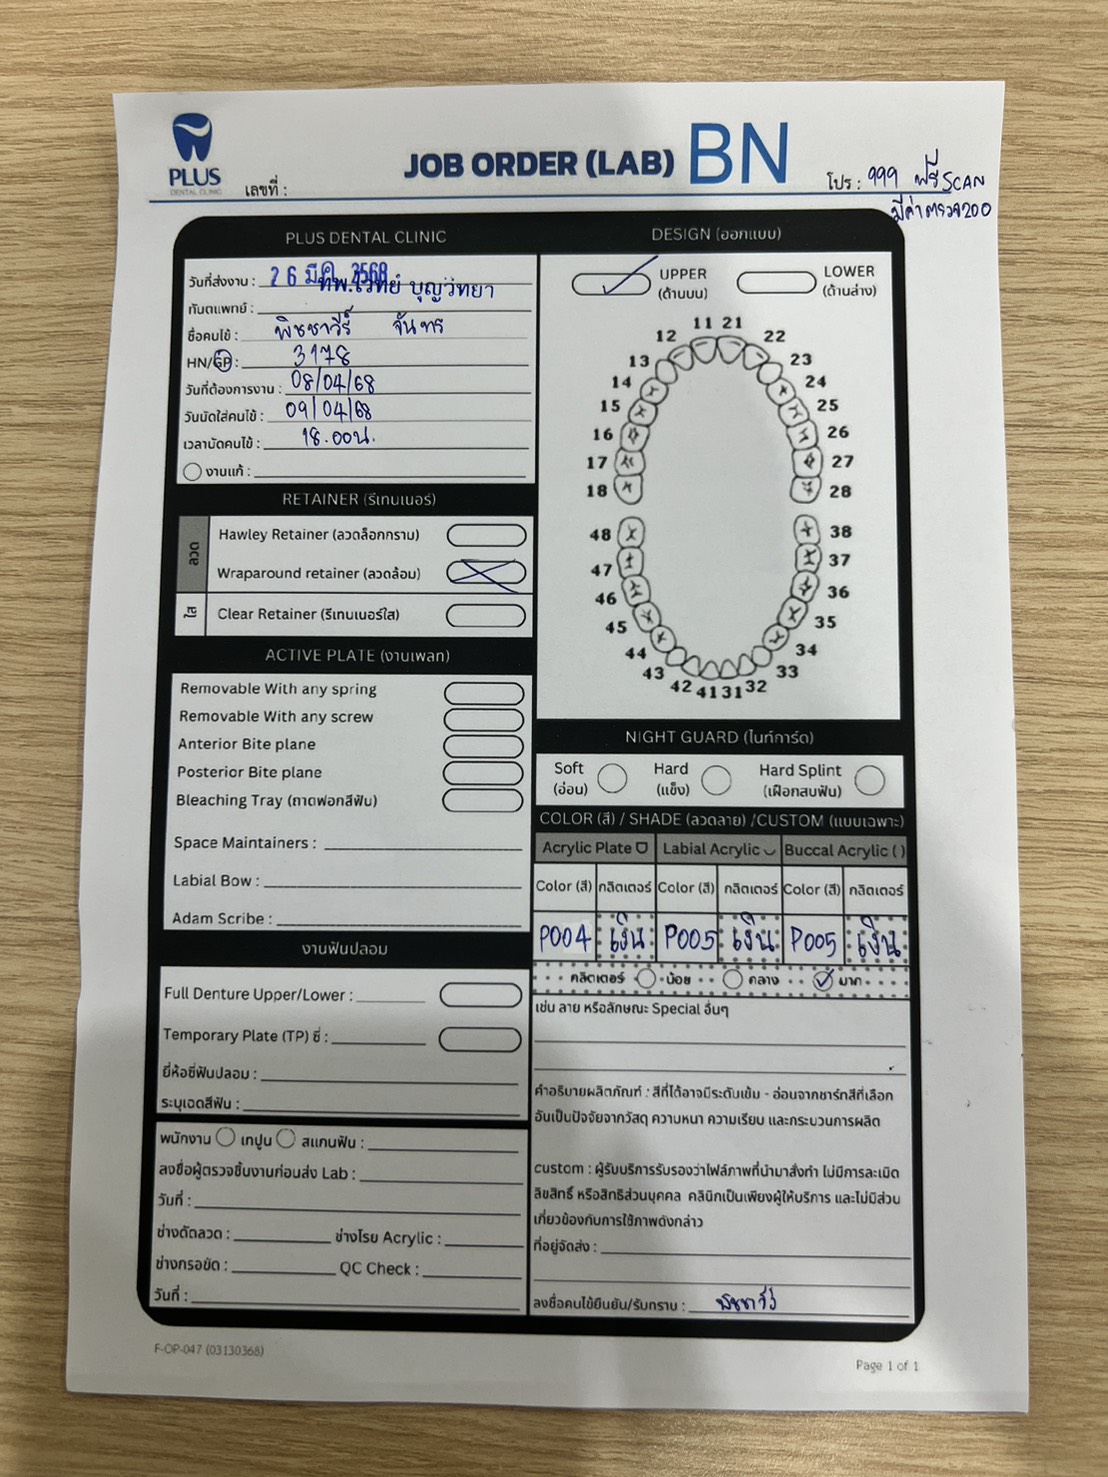 PLUS
DENTAL CLINIC
เลขที่ :
JOB ORDER (LAB) BN
โปร : 999 ฟรี SCAN
มีค่าตรวจ 200
PLUS DENTAL CLINIC
วันที่ส่งงาน : 26 มี.ค. 2568
ทันตแพทย์ : ทพ.ไวทย์ บุญวิทยา
ชื่อคนไข้ : พิชชาวีร์ จันทร
HN/GP : 3178
วันที่ต้องการงาน : 08/04/68
วันนัดใส่คนไข้ : 09/04/68
เวลานัดคนไข้ : 18.00น.
งานแก้ :
RETAINER (รีเทนเนอร์)
ลวด
Hawley Retainer (ลวดล็อกกราม)
Wraparound retainer (ลวดล้อม)
ใส
Clear Retainer (รีเทนเนอร์ใส)
ACTIVE PLATE (งานเพลท)
Removable With any spring
Removable With any screw
Anterior Bite plane
Posterior Bite plane
Bleaching Tray (ถาดฟอกสีฟัน)
Space Maintainers :
Labial Bow :
Adam Scribe :
งานฟันปลอม
Full Denture Upper/Lower :
Temporary Plate (TP) ซี่ :
ยี่ห้อซี่ฟันปลอม :
ระบุเฉดสีฟัน :
พนักงาน เทปูน สแกนฟัน :
ลงชื่อผู้ตรวจชิ้นงานก่อนส่ง Lab :
วันที่ :
ช่างดัดลวด : ช่างโรย Acrylic :
ช่างกรอขัด : QC Check :
วันที่ :
DESIGN (ออกแบบ)
UPPER
(ด้านบน)
LOWER
(ด้านล่าง)
11 21
12 22
13 23
14 24
15 25
16 26
17 27
18 28
48 38
47 37
46 36
45 35
44 34
43 33
42 41 31 32
NIGHT GUARD (ไนท์การ์ด)
Soft
(อ่อน)
Hard
(แข็ง)
Hard Splint
(เฝือกสบฟัน)
COLOR (สี) / SHADE (ลวดลาย) /CUSTOM (แบบเฉพาะ)
Acrylic Plate Labial Acrylic Buccal Acrylic ( )
Color (สี) กลิตเตอร์ Color (สี) กลิตเตอร์ Color (สี) กลิตเตอร์
P004 เงิน P005 เงิน P005 เงิน
กลิตเตอร์ น้อย กลาง มาก
เช่น ลาย หรือลักษณะ Special อื่นๆ
คำอธิบายผลิตภัณฑ์ : สีที่ได้อาจมีระดับเข้ม - อ่อนจากชาร์ทสีที่เลือก
อันเป็นปัจจัยจากวัสดุ ความหนา ความเรียบ และกระบวนการผลิต
custom : ผู้รับบริการรับรองว่าไฟล์ภาพที่นำมาสั่งทำ ไม่มีการละเมิด
ลิขสิทธิ์ หรือสิทธิส่วนบุคคล คลินิกเป็นเพียงผู้ให้บริการ และไม่มีส่วน
เกี่ยวข้องกับการใช้ภาพดังกล่าว
ที่อยู่จัดส่ง :
ลงชื่อคนไข้ยืนยัน/รับทราบ : พิชชาวีร์
F-OP-047 (03130368)
Page 1 of 1